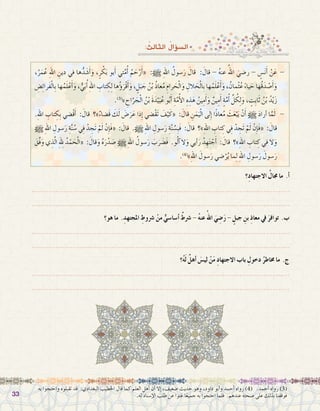 السؤال الثالث
- عَنْ أَنَسٍ - رضيَ اللهُ عنهُ - قال: قالَ رسولُ اللهِ ﷺ: «أَرْحَمُ أُمَّتِي أبو بَكْرٍ، وأَشَدُّها في دينِ اللهِ عُمَرُ،
وأَصْدَقُها حَيَاءً عُثْمانُ، وأَعْلَمُها بالْحَلالِ والْحَرامِ مُعاذُ بْنُ جَبَلٍ، وأَقْرَؤُها لِكتابِ اللهِ أُبَيٌّ، وأَعْلَمُها بالْفَرائِضِ
زَيْدُ بْنُ ثابتٍ، ولِكُلِّ أُمَّةٍ أَمِينٌ وأَمِينُ هذه الأُمَّةِ أبو عُبَيْدَةَ بْنُ الْجَرَّاحِ»(3).
- لَمّا أرادَ ﷺ أَنْ يَبْعَثَ مُعاذًا إلى الْيَمَنِ قال: «كَيْفَ تَقْضي إذا عَرَضَ لَكَ قَضاءٌ؟» قال: أَقْضي بكتابِ الله.
قال: «فإنْ لَمْ تَجِدْ في كتابِ الله؟» قال: فبِسُنَّةِ رسولِ الله ﷺ. قال: «فإنْ لَمْ تَجِدْ في سنّةِ رسولِ الله ﷺ
ولا في كتابِ الله؟» قال: أَجْتهِدُ رَأْيي ولا آلُو. فضَرَبَ رسولُ الله ﷺ صَدْرَهُ وقالَ: «الْحَمْدُ للهِ الَّذي وفَّقَ
رسولَ رسولِ الله لما يُرْضي رسولَ الله»(4).
أ. ما مَجالُ الاجتِهادِ؟
ب. توافَرَ في معاذِ بنِ جبلٍ - رَضيَ اللهُ عنهُ - شرطٌ أساسيٌّ مِنْ شروطِ المُجتهدِ. ما هو؟
ج. ما مَخاطرُ دخولِ بابِ الاجتهادِ مَنْ ليسَ أَهْلًا لهُ؟
(3) رواه أحمد. (4) رواه أحمد وأبو داود، وهو حديث ضعيف، إلّا أنّ أهل العلم كما قال الخطيب البغدادي: قد تقبلوه واحتجوا به
فوقفنا بذلك على صحته عندهم. فلما احتجوا به جميعًا غنوا عن طلب الإسناد له.
33